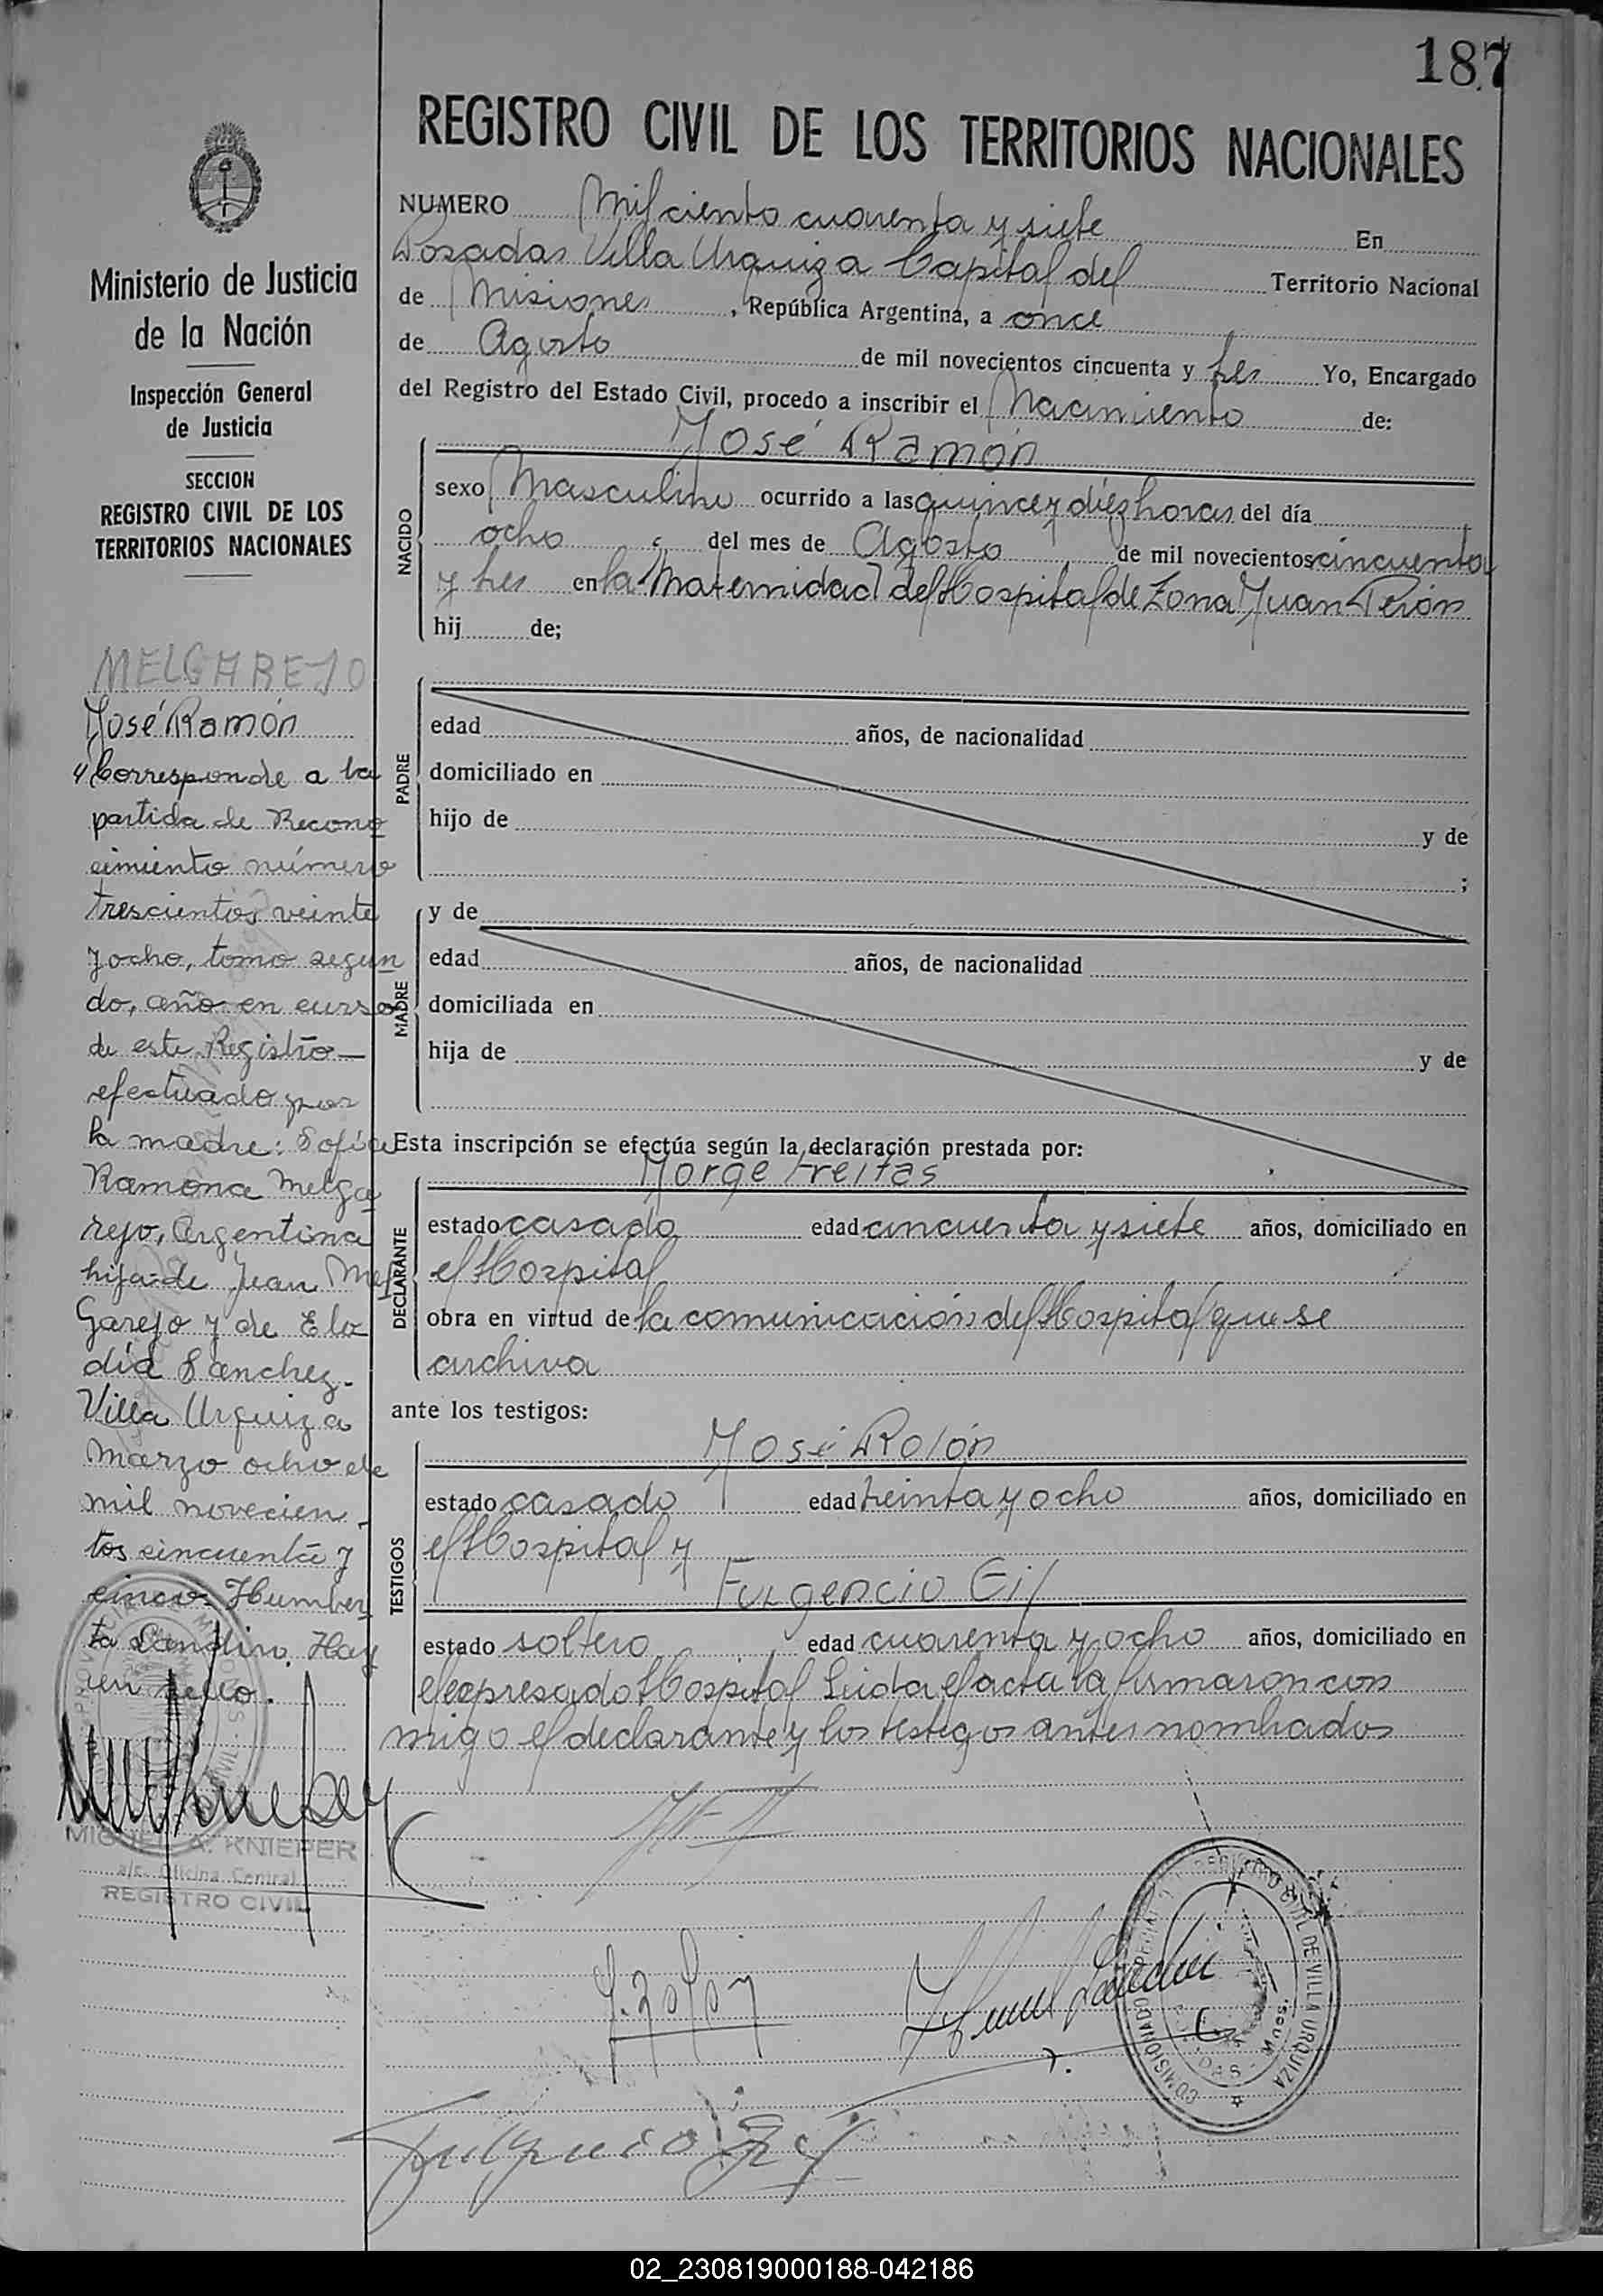 187
REGISTRO CIVIL DE LOS TERRITORIOS NACIONALES
Ministerio de Justicia
de la Nación
Inspección General
de Justicia
SECCION
REGISTRO CIVIL DE LOS
TERRITORIOS NACIONALES
MELGAREJO
José Ramón
"Corresponde a la
partida de Recono
cimiento número
trescientos veinte
y ocho, tomo segun
do, año en curso
de este Registro—
efectuado por
la madre: Sofía
Ramona Melga
rejo, Argentina
hija de Juan Mel
Garejo y de Elo
día Sanchez.
Villa Urquiza
Marzo ocho de
mil novecien-
tos cincuenta y
cinco. Humber
to Landino. Hay
un sello.
MIGUEL A. KNIEPER
a/c. Oficina Central
REGISTRO CIVIL
NUMERO Mil ciento cuarenta y siete En
Posadas Villa Urquiza Capital del Territorio Nacional
de Misiones, República Argentina, a once
de Agosto de mil novecientos cincuenta y tres Yo, Encargado
del Registro del Estado Civil, procedo a inscribir el Nacimiento de:
NACIDO
José Ramón
sexo Masculino ocurrido a las quince y diez horas del día
ocho del mes de Agosto de mil novecientos cincuenta
y tres en la Maternidad del Hospital de Zona Juan Perón
hij de;
PADRE
edad años, de nacionalidad
domiciliado en
hijo de y de
;
MADRE
y de
edad años, de nacionalidad
domiciliada en
hija de y de
Esta inscripción se efectúa según la declaración prestada por:
DECLARANTE
Jorge Freitas
estado casado edad cincuenta y siete años, domiciliado en
el Hospital
obra en virtud de la comunicación del Hospital que se
archiva
ante los testigos:
TESTIGOS
José Rolón
estado casado edad treinta y ocho años, domiciliado en
el Hospital y
Fulgencio Gil
estado soltero edad cuarenta y ocho años, domiciliado en
el expresado Hospital Leida el acta la firmaron con
migo el declarante y los testigos antes nombrados
J. Rolon
Fulgencio Gil
REGISTRO CIVIL DE VILLA URQUIZA
02_230819000188-042186